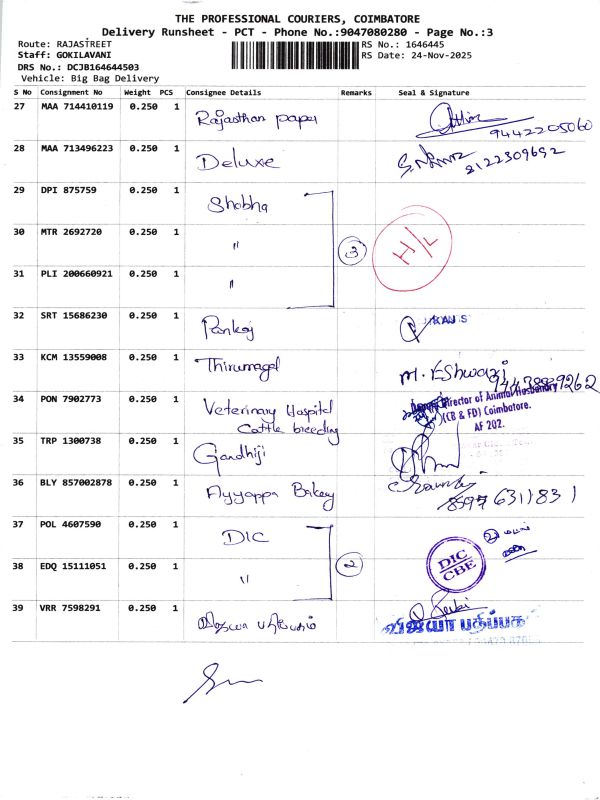 THE PROFESSIONAL COURIERS, COIMBATORE
Delivery Runsheet - PCT - Phone No.:9047080280 - Page No.:3
Route: RAJASTREET
Staff: GOKILAVANI
DRS No.: DCJB164644503
Vehicle: Big Bag Delivery
RS No.: 1646445
RS Date: 24-Nov-2025
S No Consignment No Weight PCS Consignee Details Remarks Seal & Signature
27 MAA 714410119 0.250 1 Rajasthan paper 9442205060
28 MAA 713496223 0.250 1 Deluxe 8122309692
29 DPI 875759 0.250 1 Shobha
30 MTR 2692720 0.250 1 " 3 H/L
31 PLI 200660921 0.250 1 "
32 SRT 15686230 0.250 1 Pankaj
33 KCM 13559008 0.250 1 Thirumagal M. Eshwari
34 PON 7902773 0.250 1 Veterinary Hospital
Cattle breeding
Director of Animal Husbandry
(CB & FD) Coimbatore.
AF 202.
35 TRP 1300738 0.250 1 Gandhiji
36 BLY 857002878 0.250 1 Ayyappa Bakery 8597631831
37 POL 4607590 0.250 1 DIC
38 EDQ 15111051 0.250 1 " 2 DIC
CBE
39 VRR 7598291 0.250 1 விஜயா பதிப்பகம்
விஜயா பதிப்பக